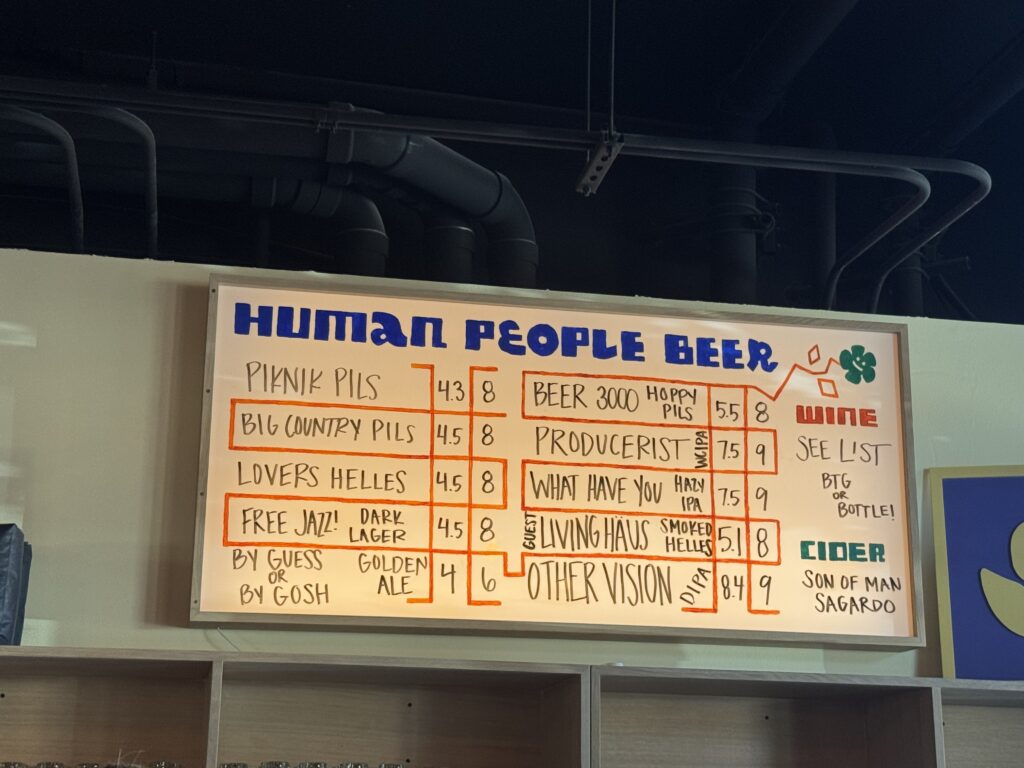 HUMAN PEOPLE BEER
PIKNIK PILS 4.3 8
BIG COUNTRY PILS 4.5 8
LOVERS HELLES 4.5 8
FREE JAZZ! DARK LAGER 4.5 8
BY GUESS OR BY GOSH GOLDEN ALE 4 6
BEER 3000 HOPPY PILS 5.5 8
PRODUCERIST WCIPA 7.5 9
WHAT HAVE YOU HAZY IPA 7.5 9
GUEST LIVING HÄUS SMOKED HELLES 5.1 8
OTHER VISION DIPA 8.4 9
WINE
SEE LIST
BTG
OR
BOTTLE!
CIDER
SON OF MAN
SAGARDO